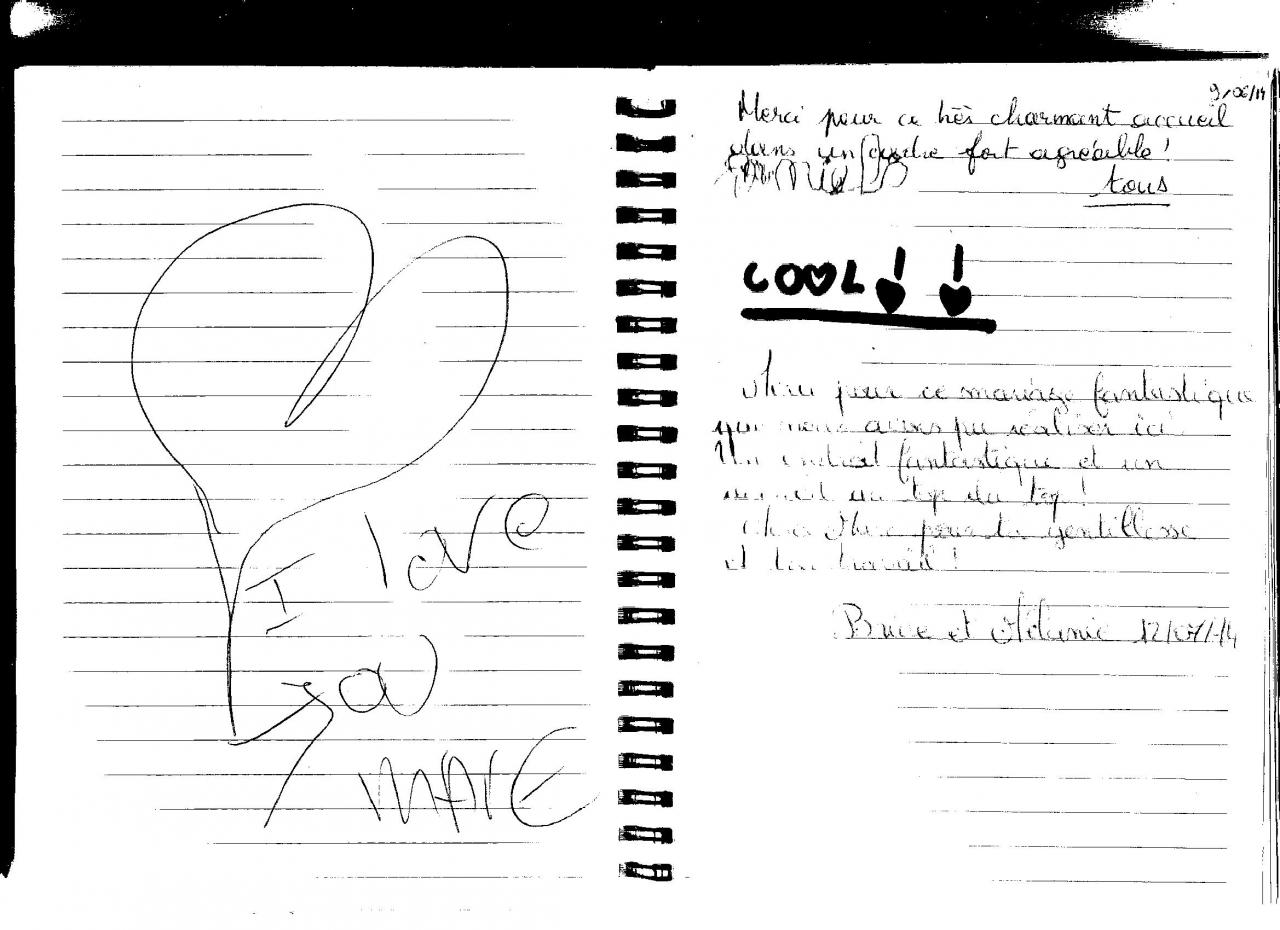 I love
you
MARC
9/06/14
Merci pour ce très charmant accueil
dans un cadre fort agréable!
tous
COOL !!
Merci pour ce mariage fantastique
que nous avons pu réaliser ici.
Un endroit fantastique et un
accueil au top du top!
Merci Marc pour ta gentillesse
et ton travail!
Brice et Mélanie 12/07/14